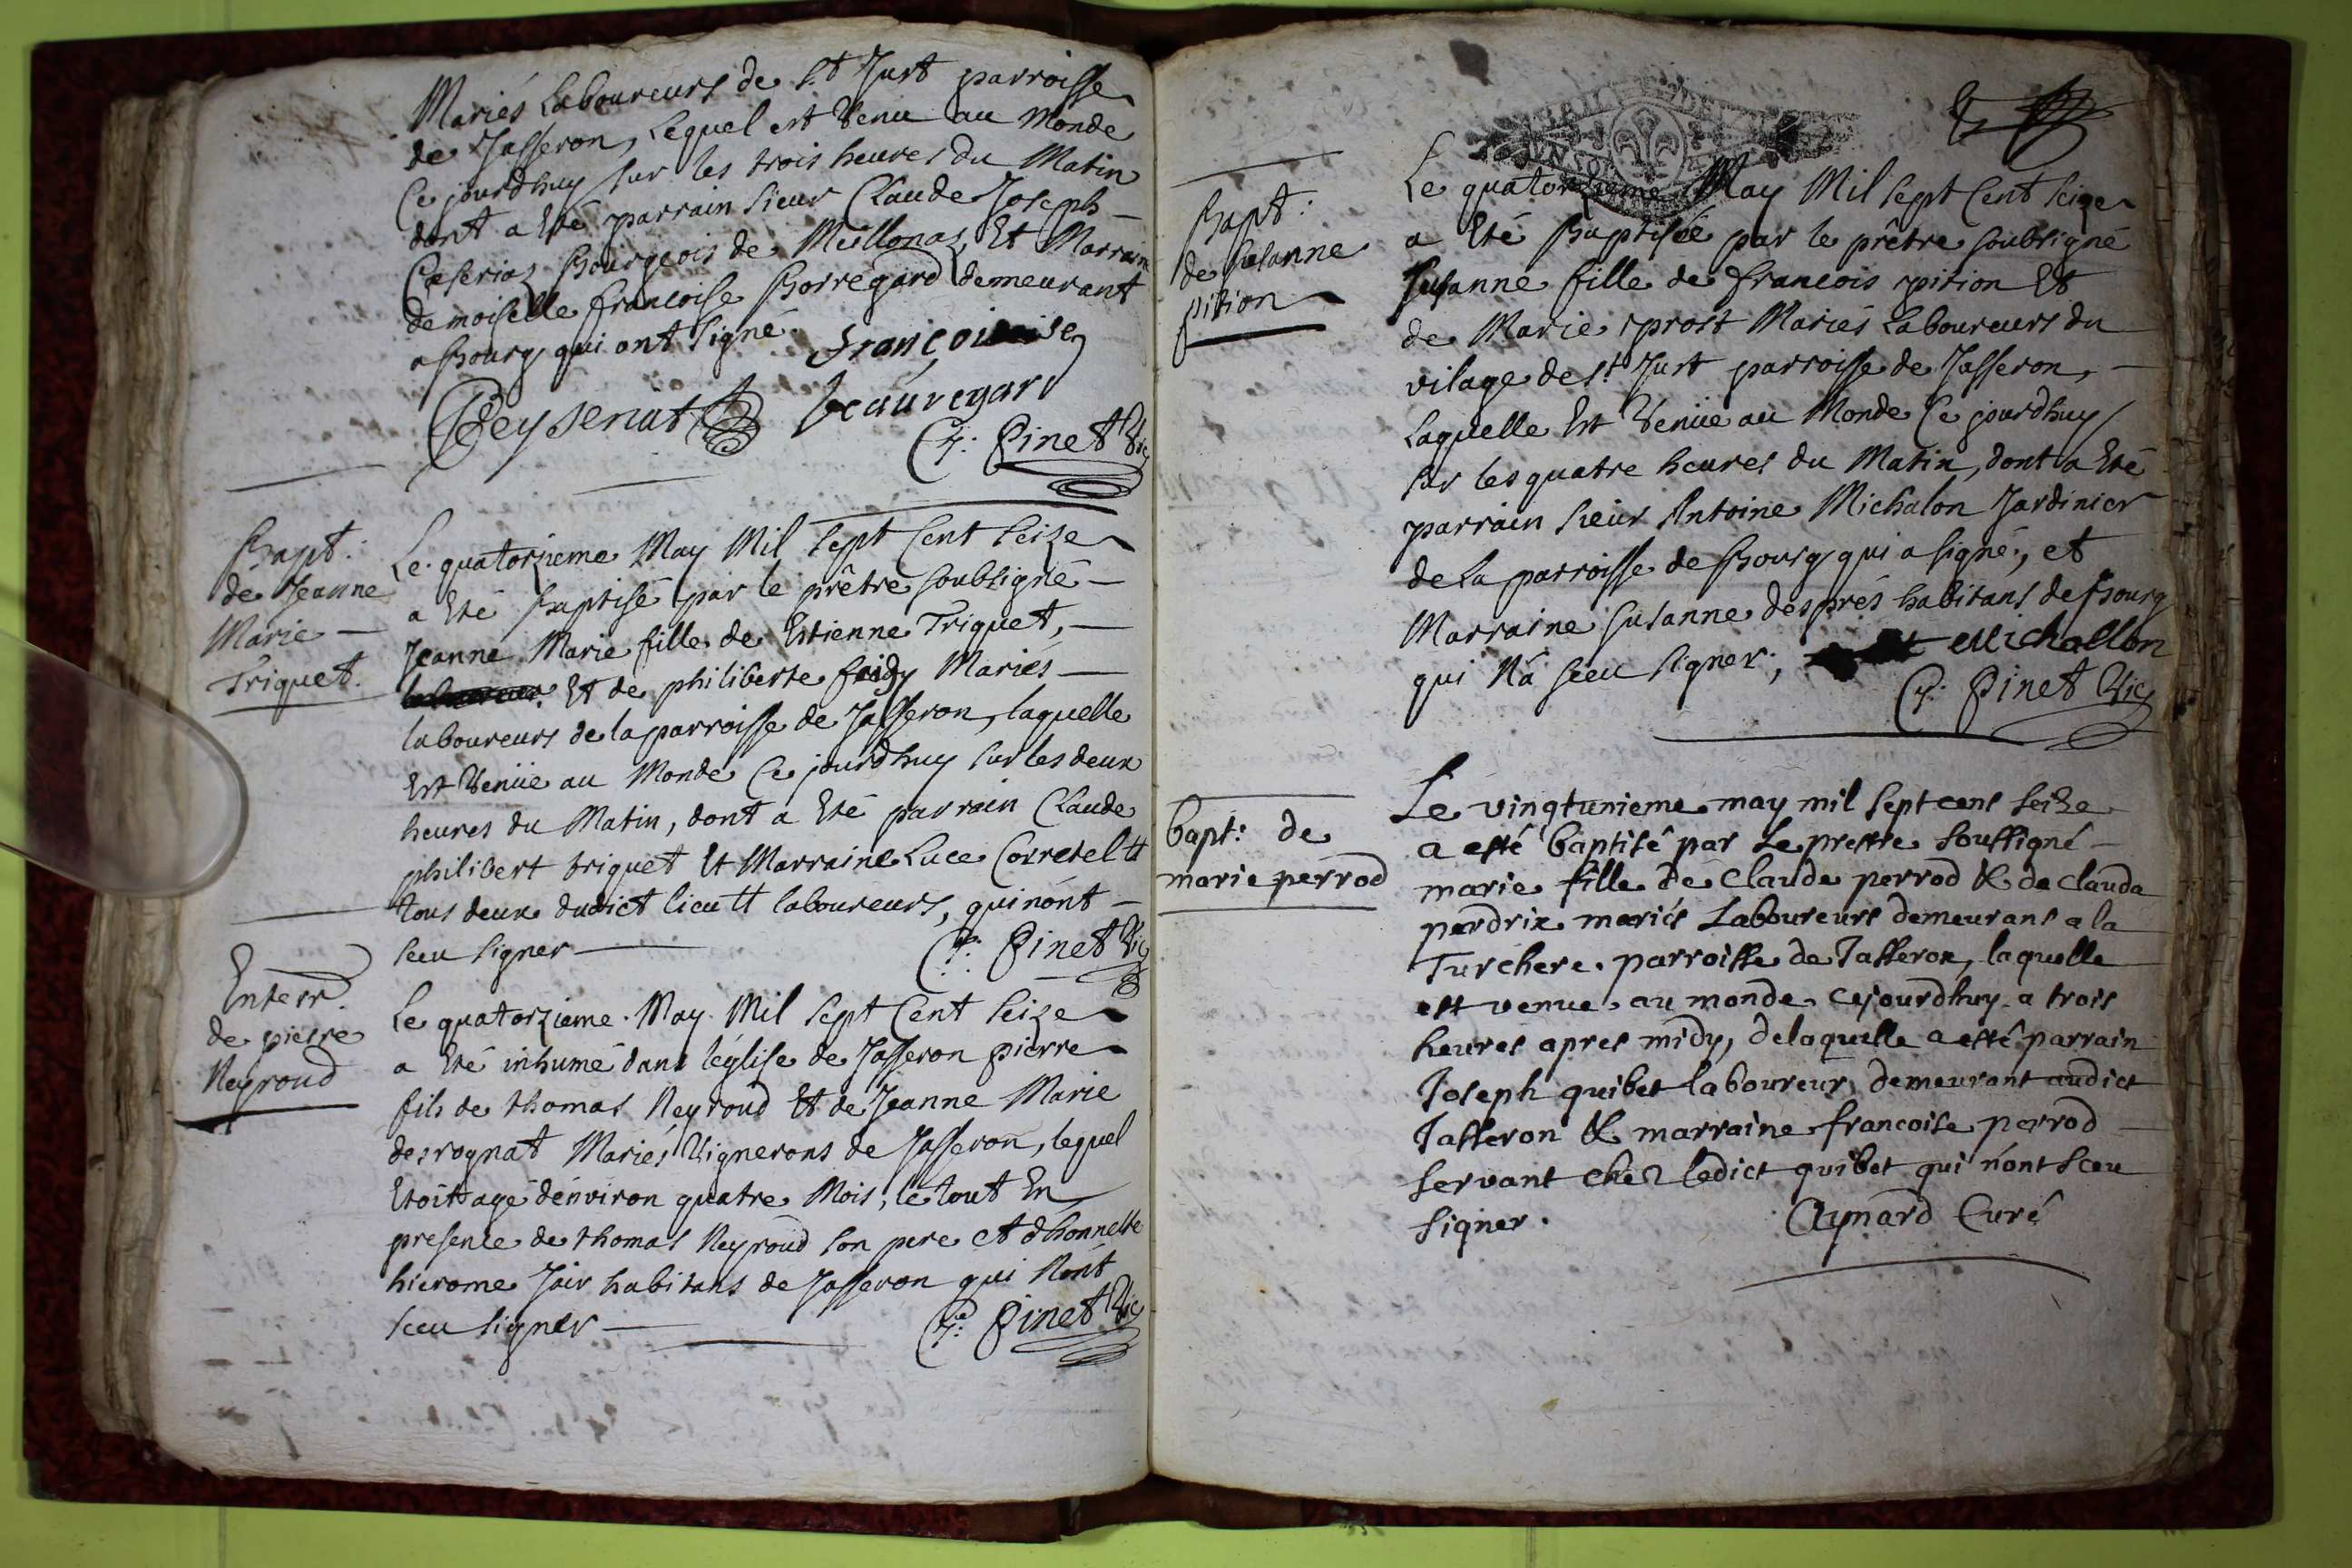 Mariés Laboureurs de St Just parroisse
de Jasseron, Lequel est Venu au Monde
Ce jourdhuy sur les trois heures du Matin
dont a Eté parrain sieur Claude Joseph
Bourgeois de Meillonaz, Et Marraine
demoiselle francoise Borregard demeurant
a Bourg qui ont signé
françoise
beauregard
C: Pinet Vic
Bapt:
de Jeanne
Marie
Triquet.
Le quatorzieme May Mil sept Cent seize
a Eté Baptisé par le prêtre soubsigné
Jeanne Marie fille de Estienne Triquet,
Et de philiberte Mariés
laboureurs de la parroisse de Jasseron, laquelle
Est Venüe au Monde Ce jourdhuy sur les deux
heures du Matin, dont a Eté parrain Claude
philibert triquet Et Marraine Luce
tous deux dudict lieu laboureurs, qui nont
sceu signer
C: Pinet Vic
Enterr.
de pierre
Neyroud
Le quatorzieme May Mil sept Cent seize
a Eté inhumé dans léglise de Jasseron pierre
fils de thomas Neyroud Et de Jeanne Marie
desrognat Mariés Vignerons de Jasseron, lequel
Etoit agé dénviron quatre Mois, le tout En
presence de thomas Neyroud son pere et dhonneste
hierome Jair habitans de Jasseron qui Nont
sceu signer
C: Pinet Vic
Bapt:
de susanne
pition
Le quatorzieme May Mil sept Cent seize
a Eté Baptisée par le prêtre soubsigné
susanne fille de francois pition Et
de Marie prost Mariés Laboureurs du
vilage de st Just parroisse de Jasseron,
Laquelle Est Venüe au Monde Ce jourdhuy
sur les quatre heures du Matin, dont a Eté
parrain sieur Antoine Michalon Jardinier
de La parroisse de Bourg qui a signé, et
Marraine susanne després habitans de Bourg
qui Ná sceu signer;
Michallon
C: Pinet Vic
bapt: de
marie perrod
Le vingtunieme may mil sept cens seize
a esté baptisé par Le prestre soussigné
marie fille de Claude perrod & de clauda
perdrix mariés Laboureurs demeurans a la
Turchere parroisse de Jasseron, laquelle
est venue au monde cejourdhuy a trois
heures apres midy, de laquelle a esté parrain
Joseph quibet laboureur demeurant audict
Jasseron & marraine francoise perrod
servant chez ledict quibet qui n'ont sceu
signer.
Aynard Curé